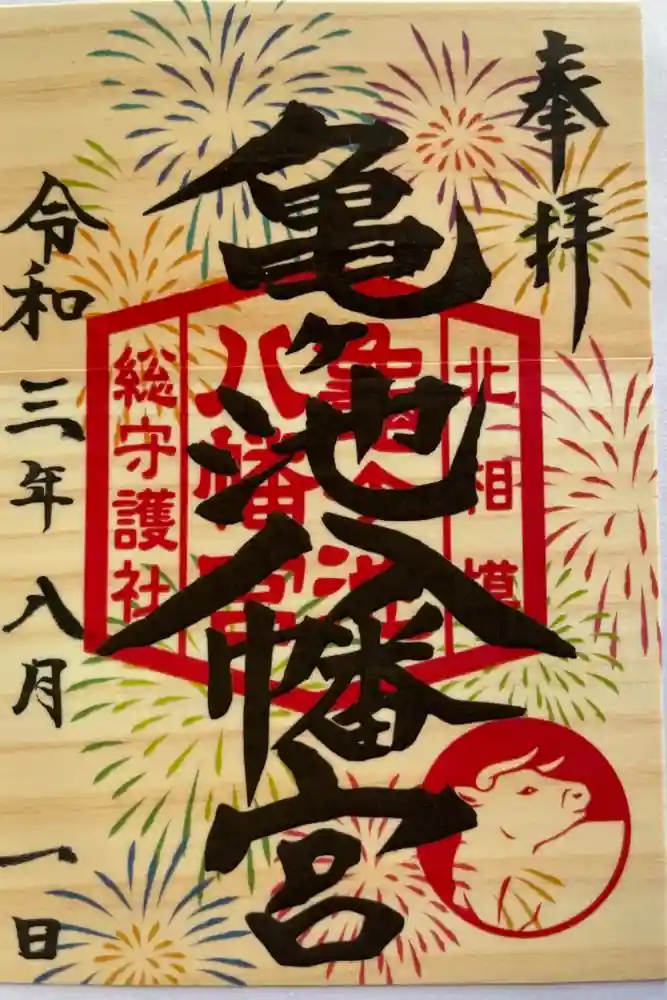 奉拝
亀ヶ池八幡宮
北相模
亀ヶ池
八幡宮
総守護社
令和三年八月一日